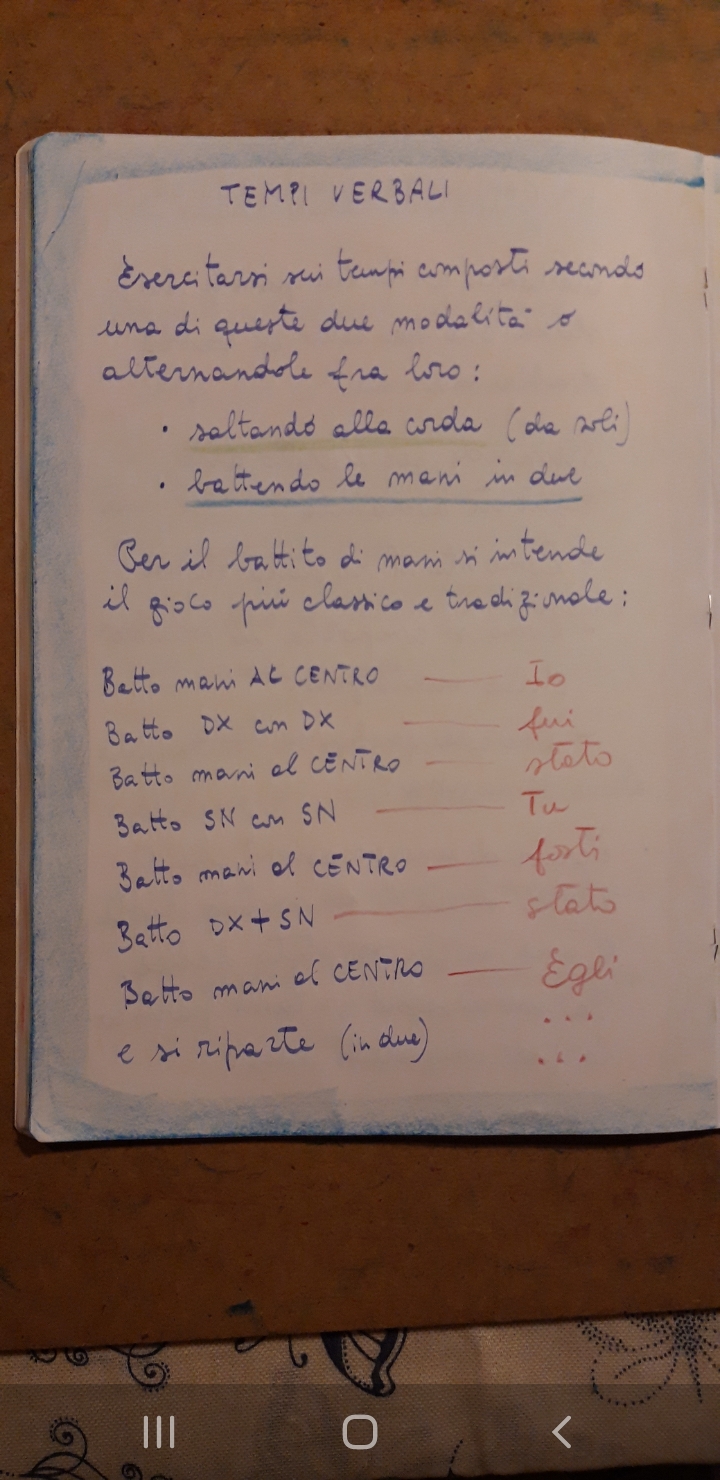 TEMPI VERBALI
Esercitarsi sui tempi composti secondo
una di queste due modalità o
alternandole fra loro:
• saltando alla corda (da soli)
• battendo le mani in due
Per il battito di mani si intende
il gioco più classico e tradizionale:
Batto mani AL CENTRO — Io
Batto DX con DX — fui
Batto mani al CENTRO — stato
Batto SN con SN — Tu
Batto mani al CENTRO — fosti
Batto DX+SN — stato
Batto mani al CENTRO — Egli
...
e si riparte (in due) ...